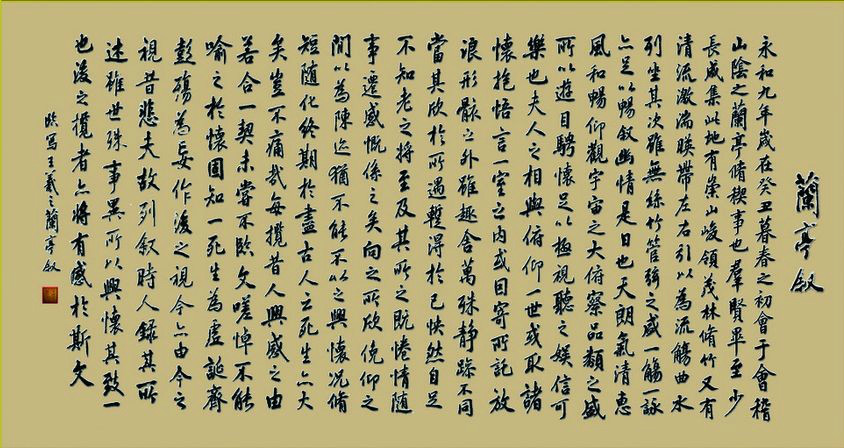 蘭亭叙
永和九年歲在癸丑暮春之初會于會稽
山陰之蘭亭脩稧事也羣賢畢至少
長咸集此地有崇山峻領茂林脩竹又有
清流激湍暎帶左右引以為流觴曲水
列坐其次雖無絲竹管絃之盛一觴一詠
亦足以暢叙幽情是日也天朗氣清惠
風和暢仰觀宇宙之大俯察品類之盛
所以遊目騁懷足以極視聽之娛信可
樂也夫人之相與俯仰一世或取諸
懷抱悟言一室之內或因寄所託放
浪形骸之外雖趣舍萬殊静躁不同
當其欣於所遇蹔得於己怏然自足
不知老之將至及其所之既惓情隨
事遷感慨係之矣向之所欣俛仰之
間以為陳迹猶不能不以之興懷況脩
短隨化終期於盡古人云死生亦大
矣豈不痛哉每攬昔人興感之由
若合一契未嘗不臨文嗟悼不能
喻之於懷固知一死生為虛誕齊
彭殤為妄作後之視今亦由今之
視昔悲夫故列叙時人錄其所
述雖世殊事異所以興懷其致一
也後之攬者亦將有感於斯文
臨寫王羲之蘭亭叙